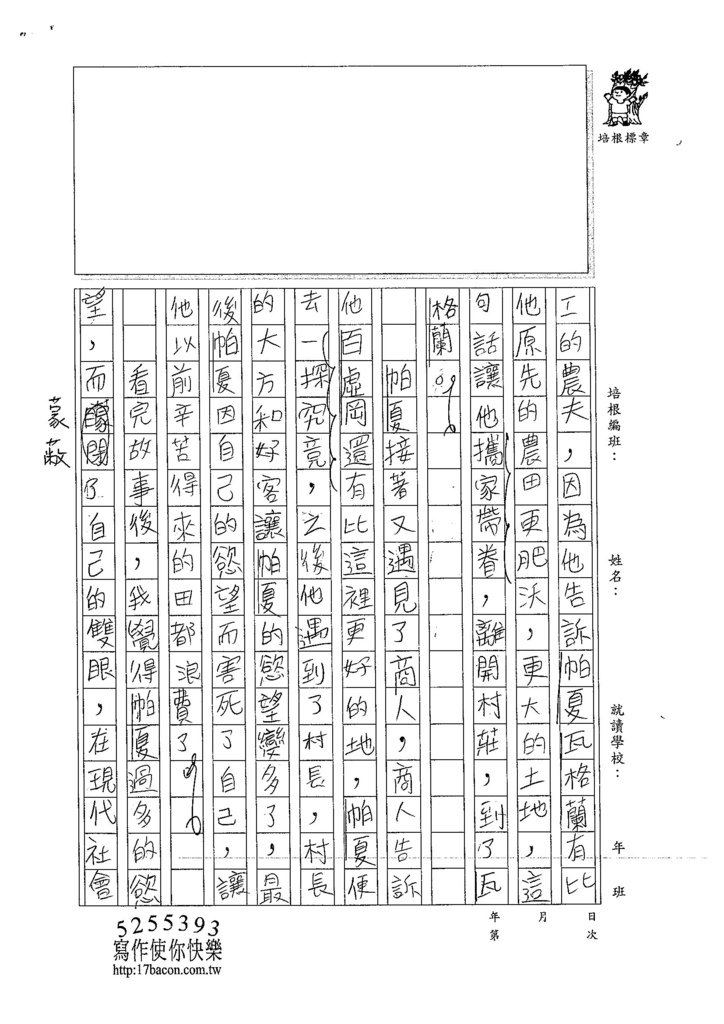 培根標章
培根編班： 姓名： 就讀學校： 年 班
工的農夫，因為他告訴帕夏瓦格蘭有比
他原先的農田更肥沃，更大的土地，這
句話讓他攜家帶眷，離開村莊，到了瓦
格蘭。
帕夏接著又遇見了商人，商人告訴
他百虛岡還有比這裡更好的地，帕夏便
去一探究竟，之後他遇到了村長，村長
的大方和好客讓帕夏的慾望變多了，最
後帕夏因自己的慾望而害死了自己，讓
他以前辛苦得來的田都浪費了。
看完故事後，我覺得帕夏過多的慾
望，而矇閉了自己的雙眼，在現代社會
蒙蔽
年 月 日
第 次
5255393
寫作使你快樂
http:17bacon.com.tw